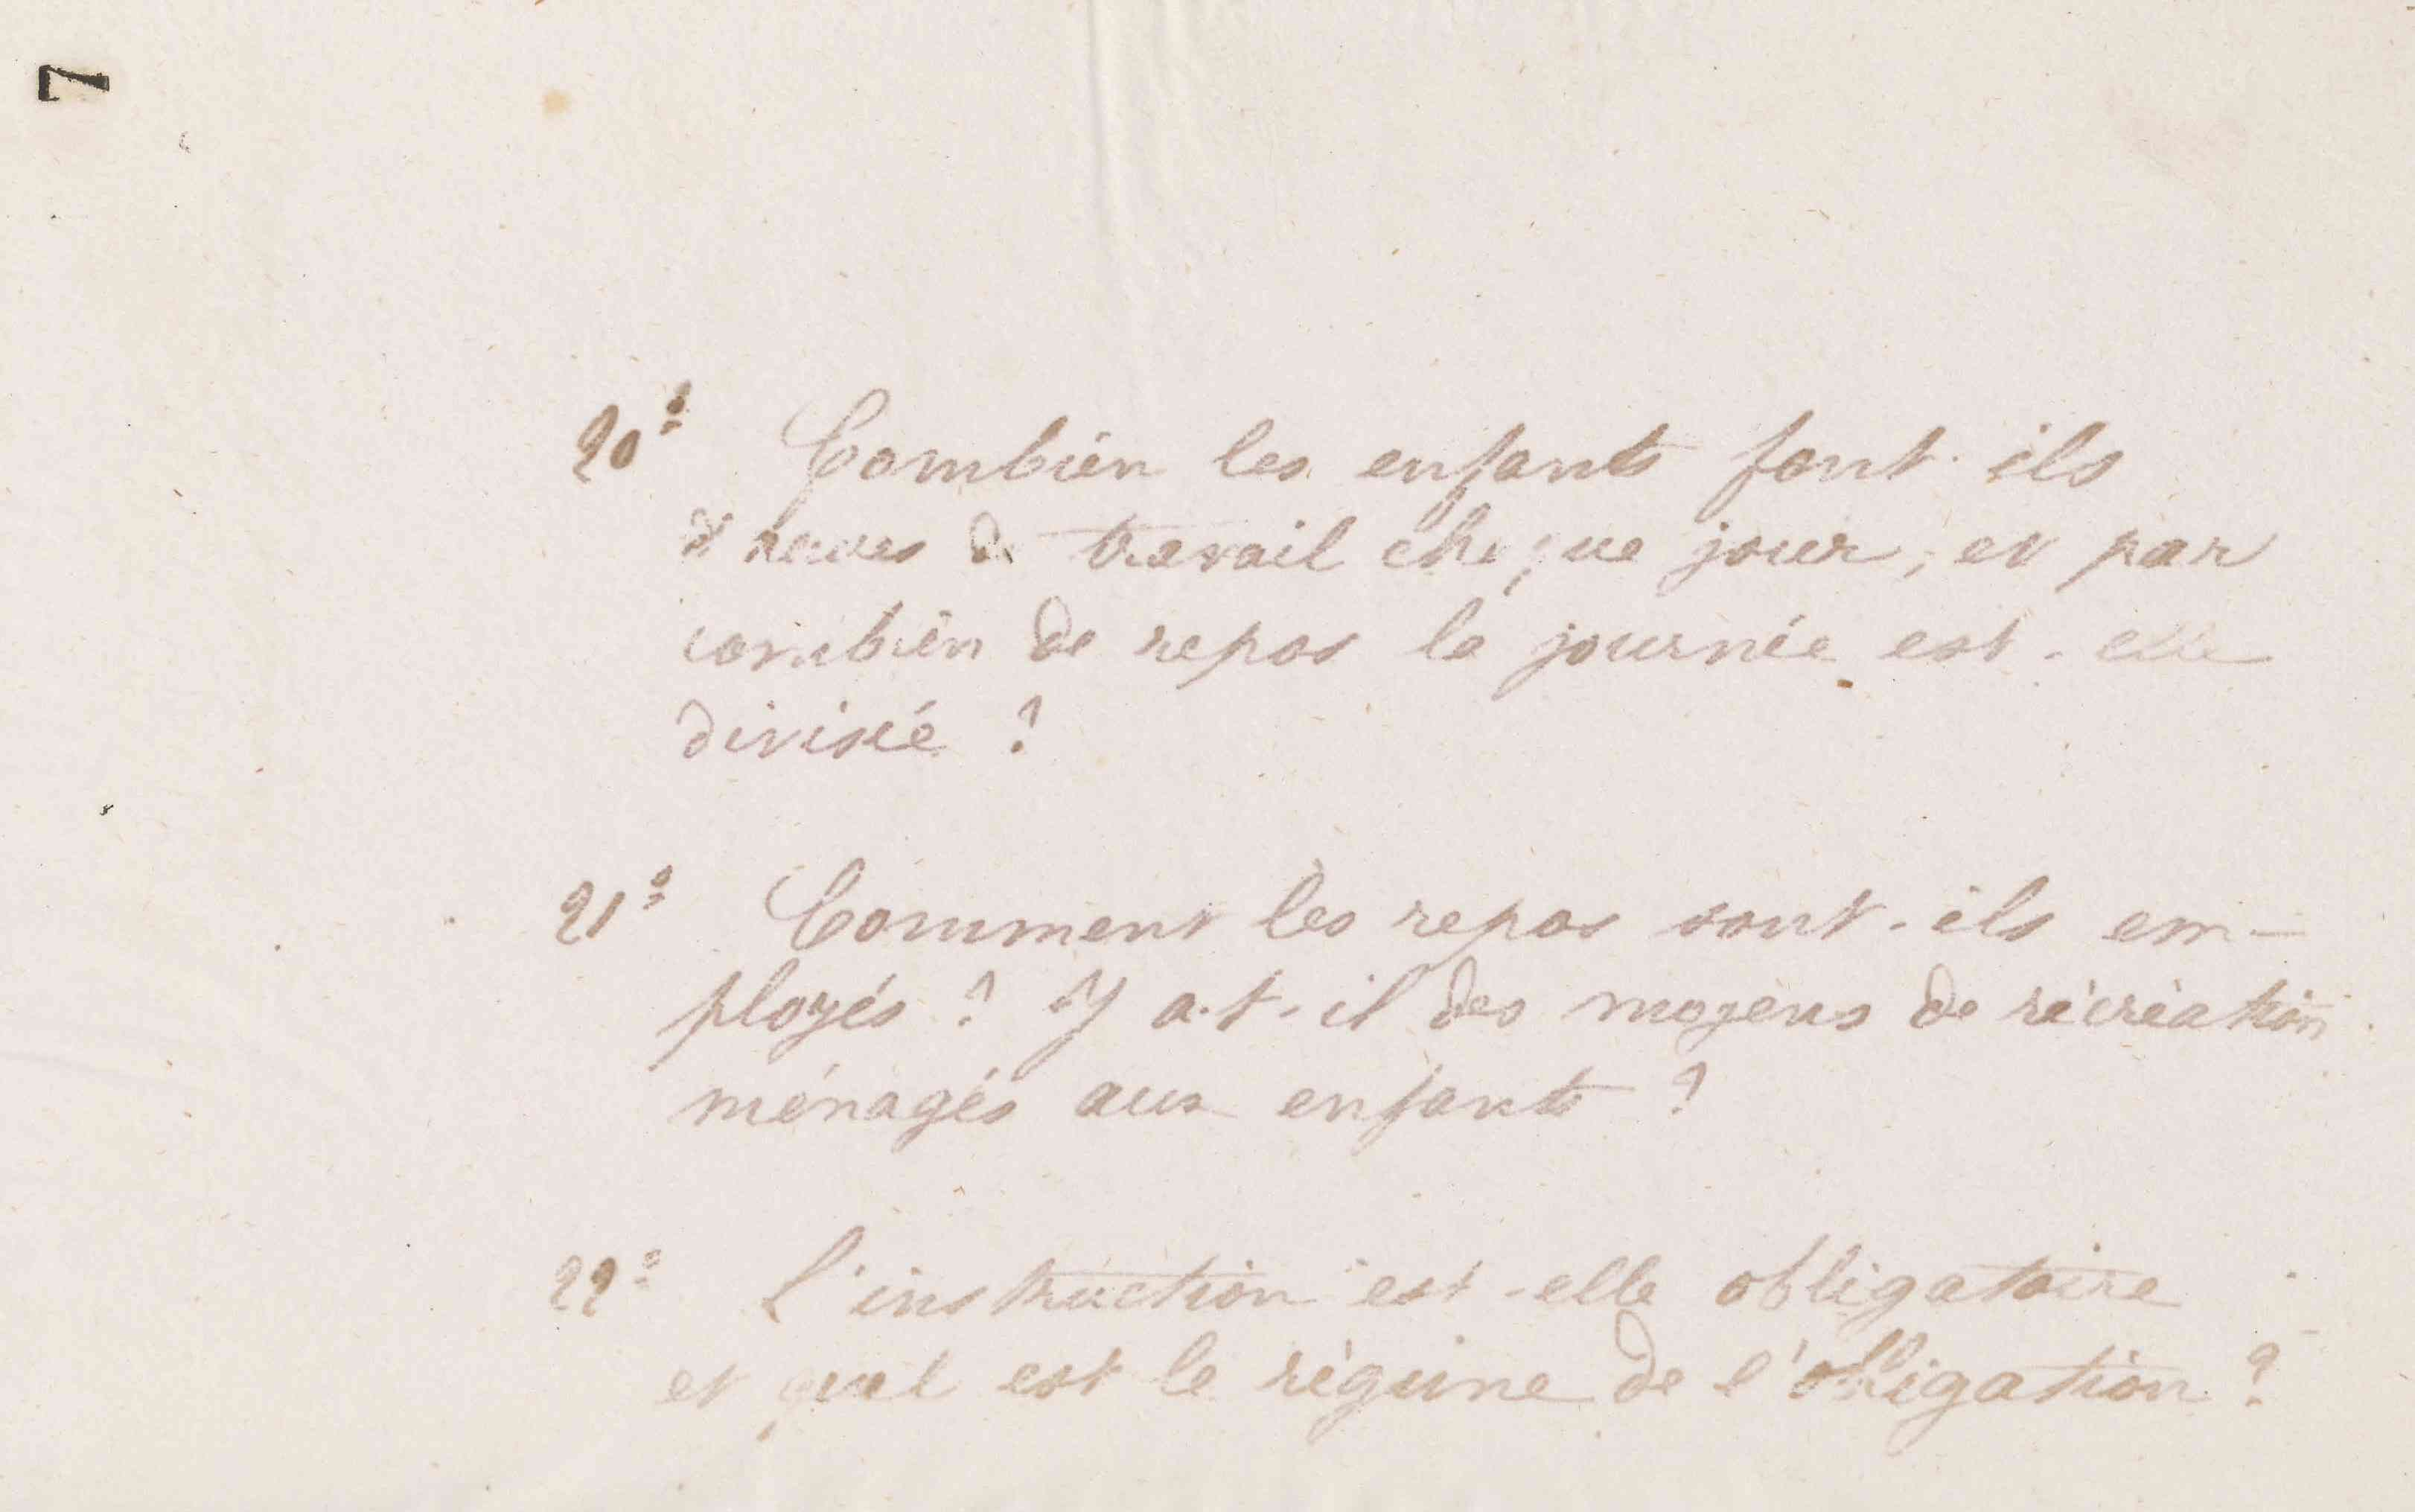 7
20° Combien les enfants font-ils
d'heures de travail chaque jour, et par
combien de repos la journée est-elle
divisée ?
21° Comment les repos sont-ils em-
ployés ? Y a-t-il des moyens de récréation
ménagés aux enfants ?
22° L'instruction est-elle obligatoire
et quel est le régime de l'obligation ?